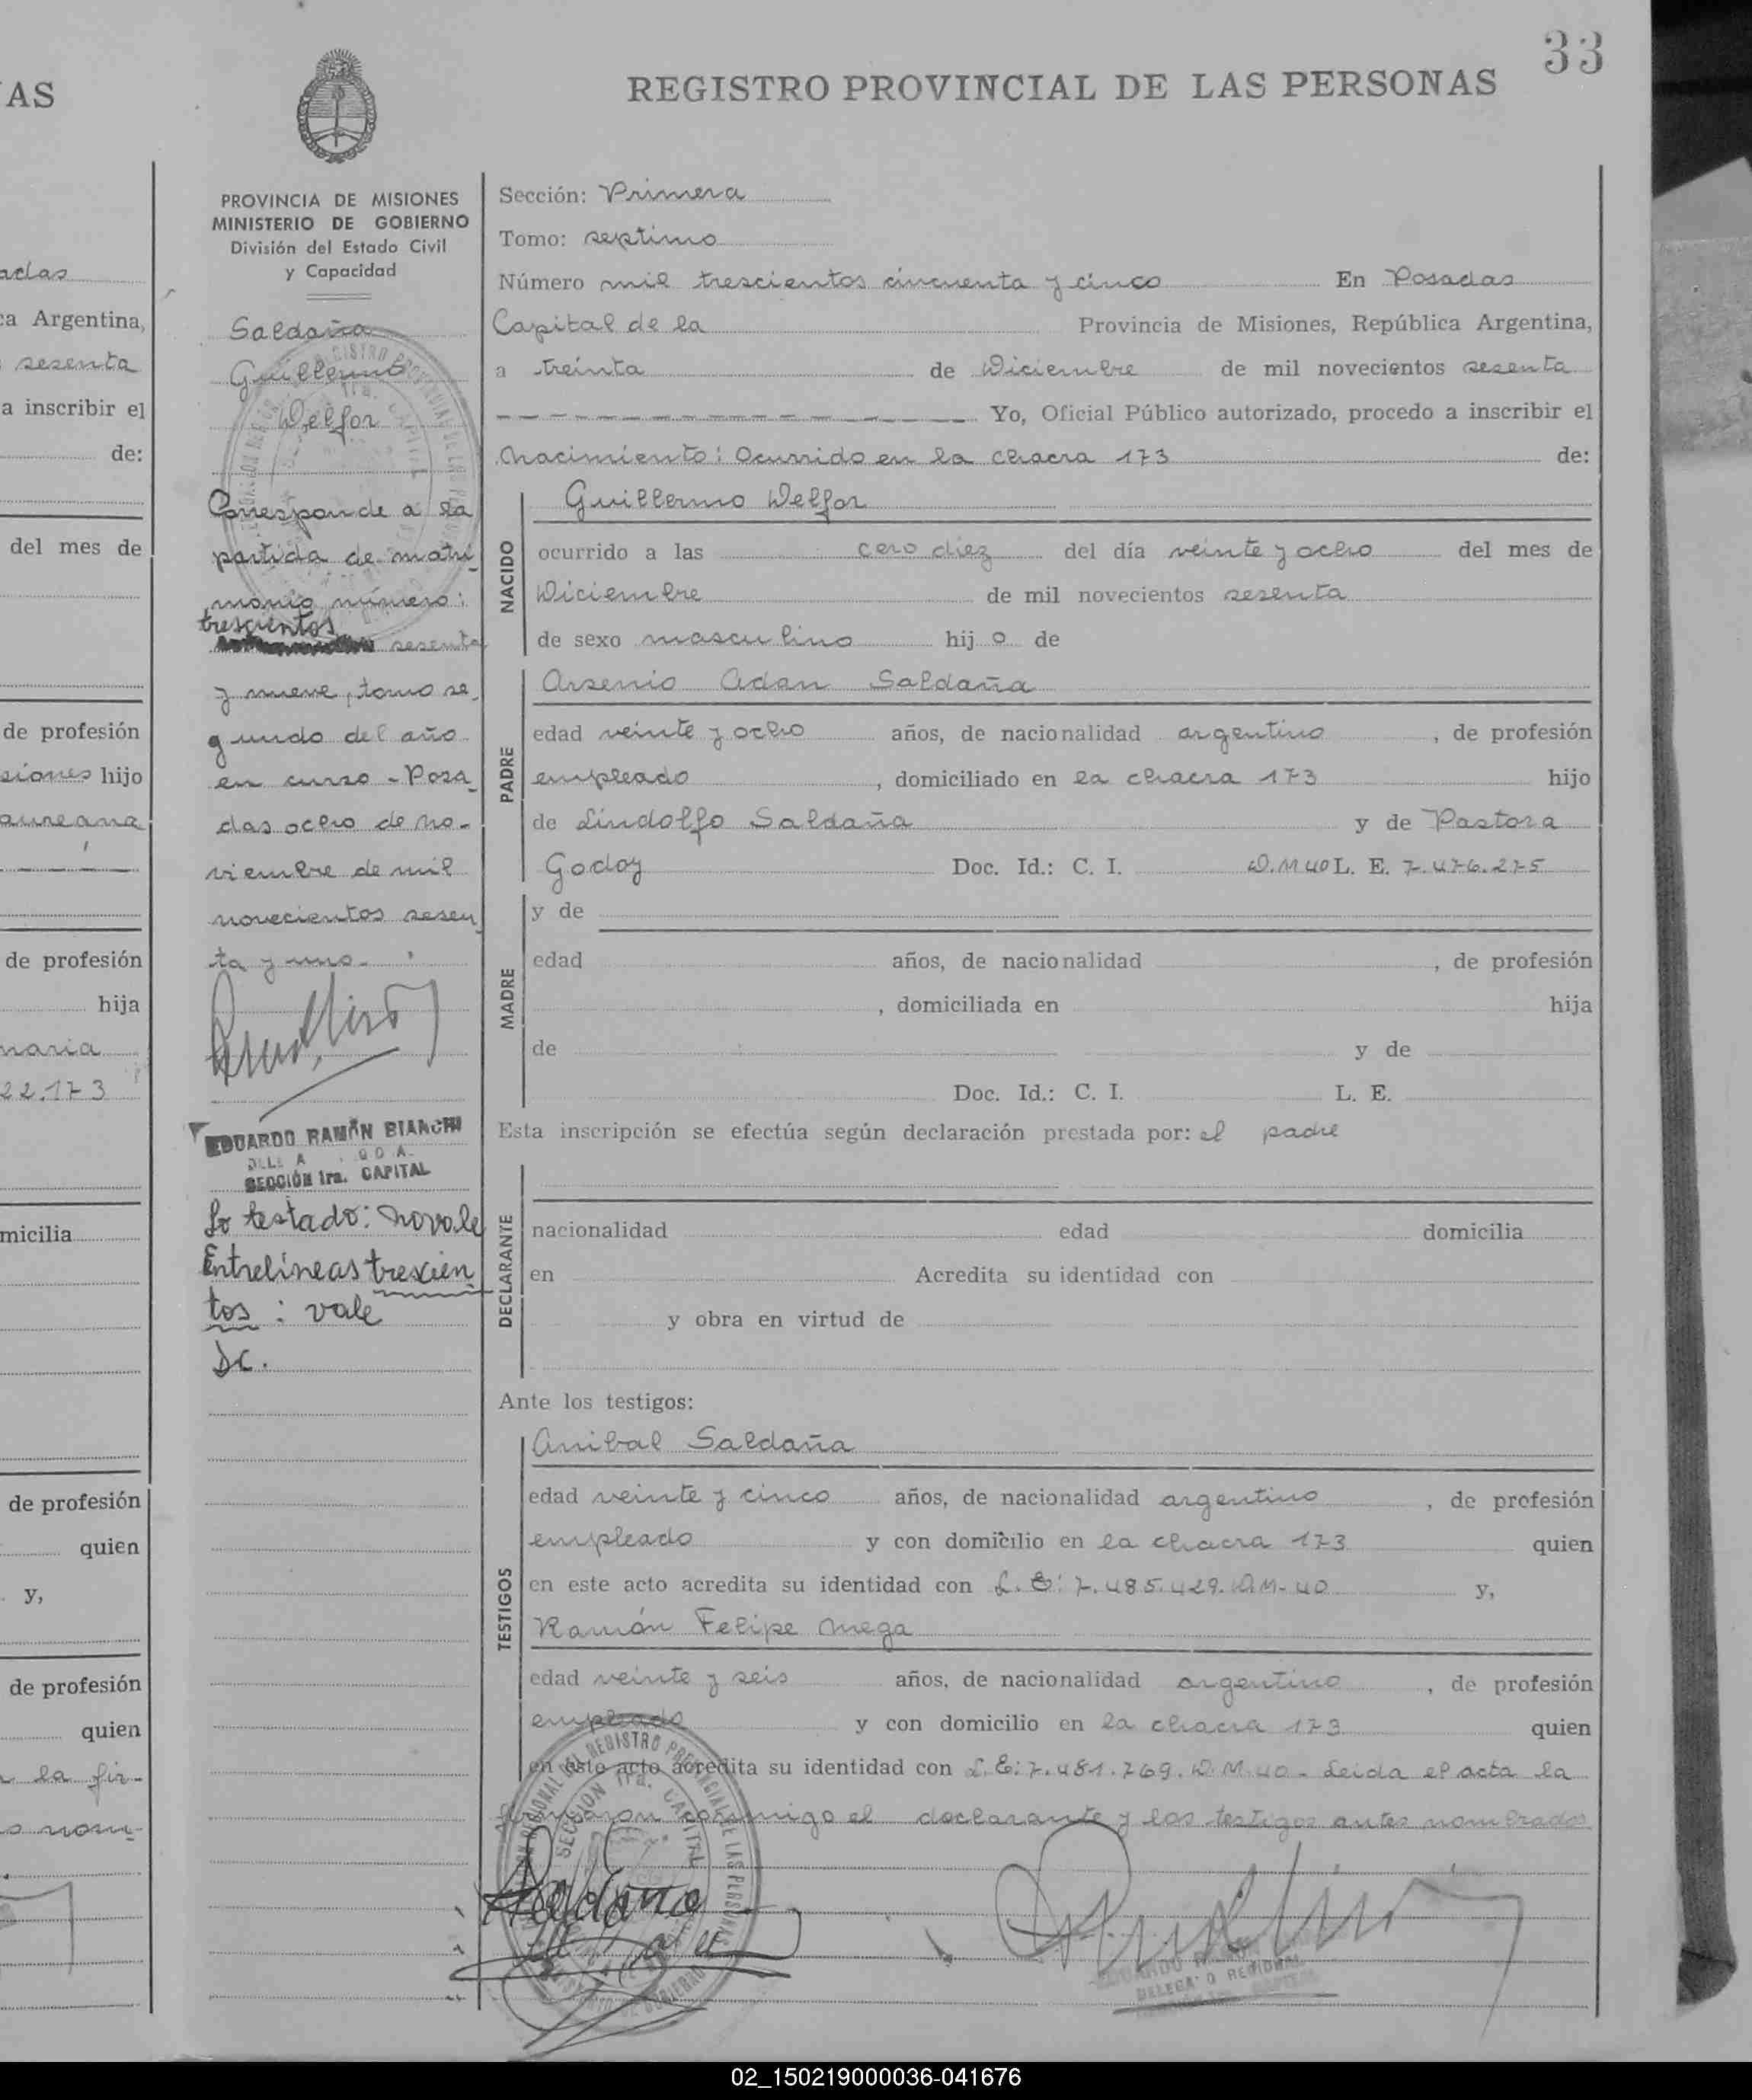 33
REGISTRO PROVINCIAL DE LAS PERSONAS
AS
PROVINCIA DE MISIONES
MINISTERIO DE GOBIERNO
División del Estado Civil
y Capacidad
Saldaña
Guillermo
Welfor
Corresponde a la
partida de matri
monio número:
trescientos
sesenta
y nueve, tomo se
gundo del año
en curso - Posa
das ocho de no-
viembre de mil
novecientos sesen
ta y uno.
EDUARDO RAMÓN BIANCHI
SECCIÓN 1ra. CAPITAL
Lo testado: no vale
Entrelíneas trescien
tos: vale
Sección: Primera
Tomo: septimo
Número mil trescientos cincuenta y cinco En Posadas
Capital de la Provincia de Misiones, República Argentina,
a treinta de Diciembre de mil novecientos sesenta
Yo, Oficial Público autorizado, procedo a inscribir el
Nacimiento: Ocurrido en la chacra 173 de:
NACIDO
Guillermo Welfor
ocurrido a las cero diez del día veinte y ocho del mes de
Diciembre de mil novecientos sesenta
de sexo masculino hijo de
PADRE
Arsenio Adan Saldaña
edad veinte y ocho años, de nacionalidad argentino, de profesión
empleado, domiciliado en la chacra 173 hijo
de Lindolfo Saldaña y de Pastora
Godoy Doc. Id.: C. I. D.M 40 L. E. 7.476.275
MADRE
y de
edad años, de nacionalidad , de profesión
, domiciliada en hija
de y de
Doc. Id.: C. I. L. E.
Esta inscripción se efectúa según declaración prestada por: el padre
DECLARANTE
nacionalidad edad domicilia
en Acredita su identidad con
y obra en virtud de
Ante los testigos:
TESTIGOS
Anibal Saldaña
edad veinte y cinco años, de nacionalidad argentino, de profesión
empleado y con domicilio en la chacra 173 quien
en este acto acredita su identidad con L. E: 7.485.429. D.M- 40 y,
Ramón Felipe Mega
edad veinte y seis años, de nacionalidad argentino, de profesión
empleado y con domicilio en la chacra 173 quien
en este acto acredita su identidad con L.E: 7.481.769. D.M. 40 - Leida el acta la
firmaron conmigo el declarante y los testigos antes nombrados
Saldaña
DELEGADO REGIONAL
02_150219000036-041676